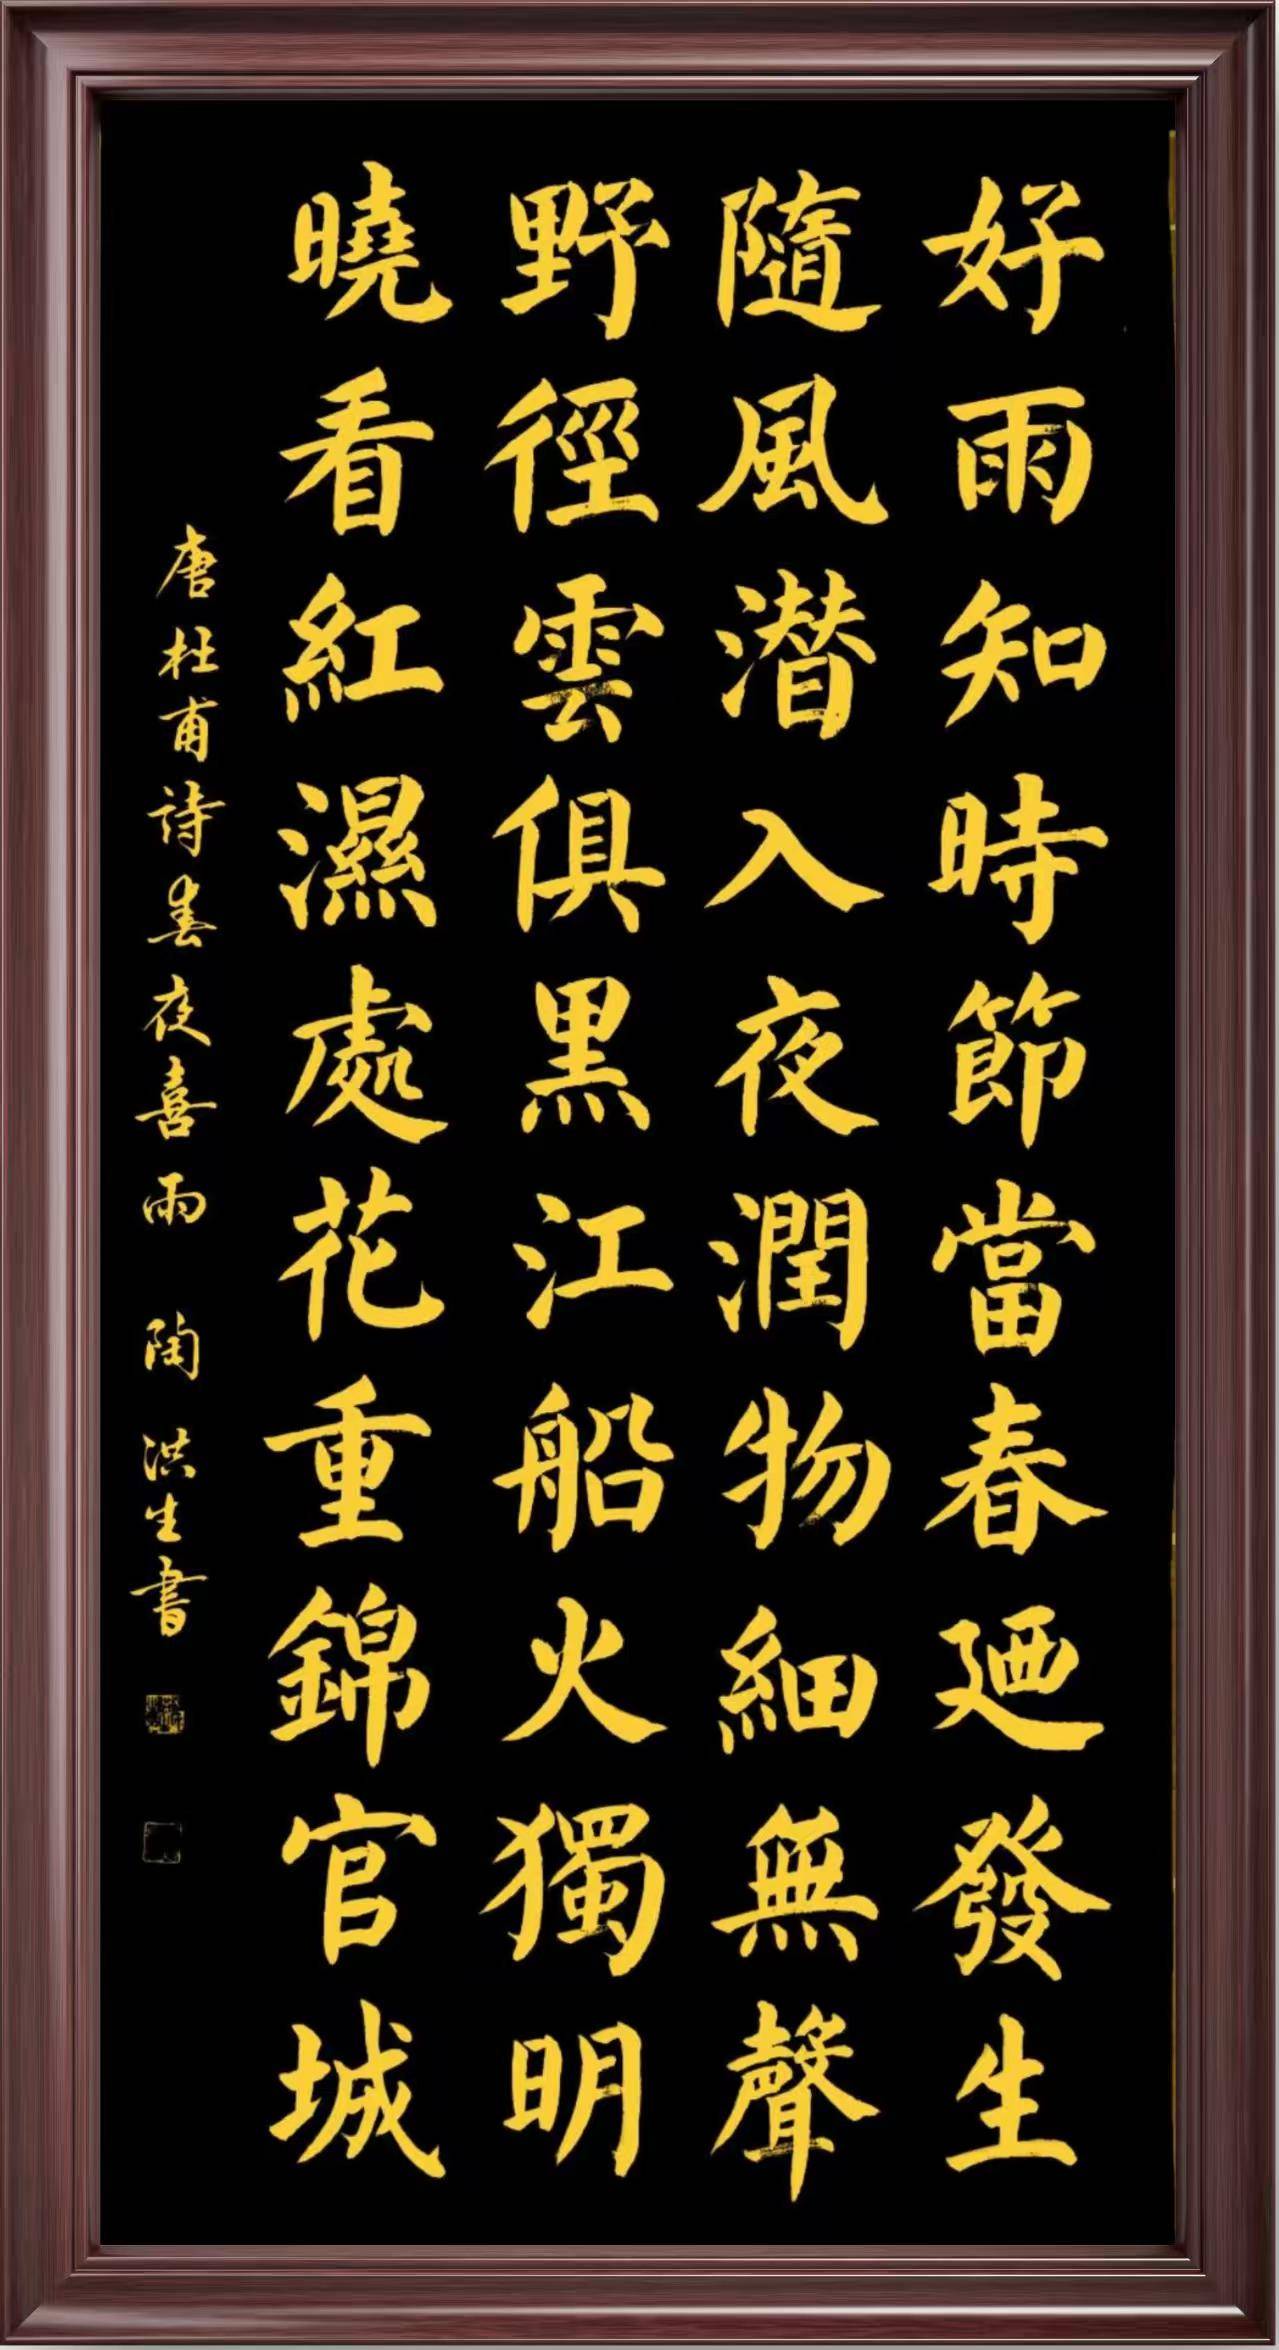 好雨知時節當春廼發生
隨風潛入夜潤物細無聲
野徑雲俱黑江船火獨明
曉看紅濕處花重錦官城
唐杜甫詩春夜喜雨 陶洪生書